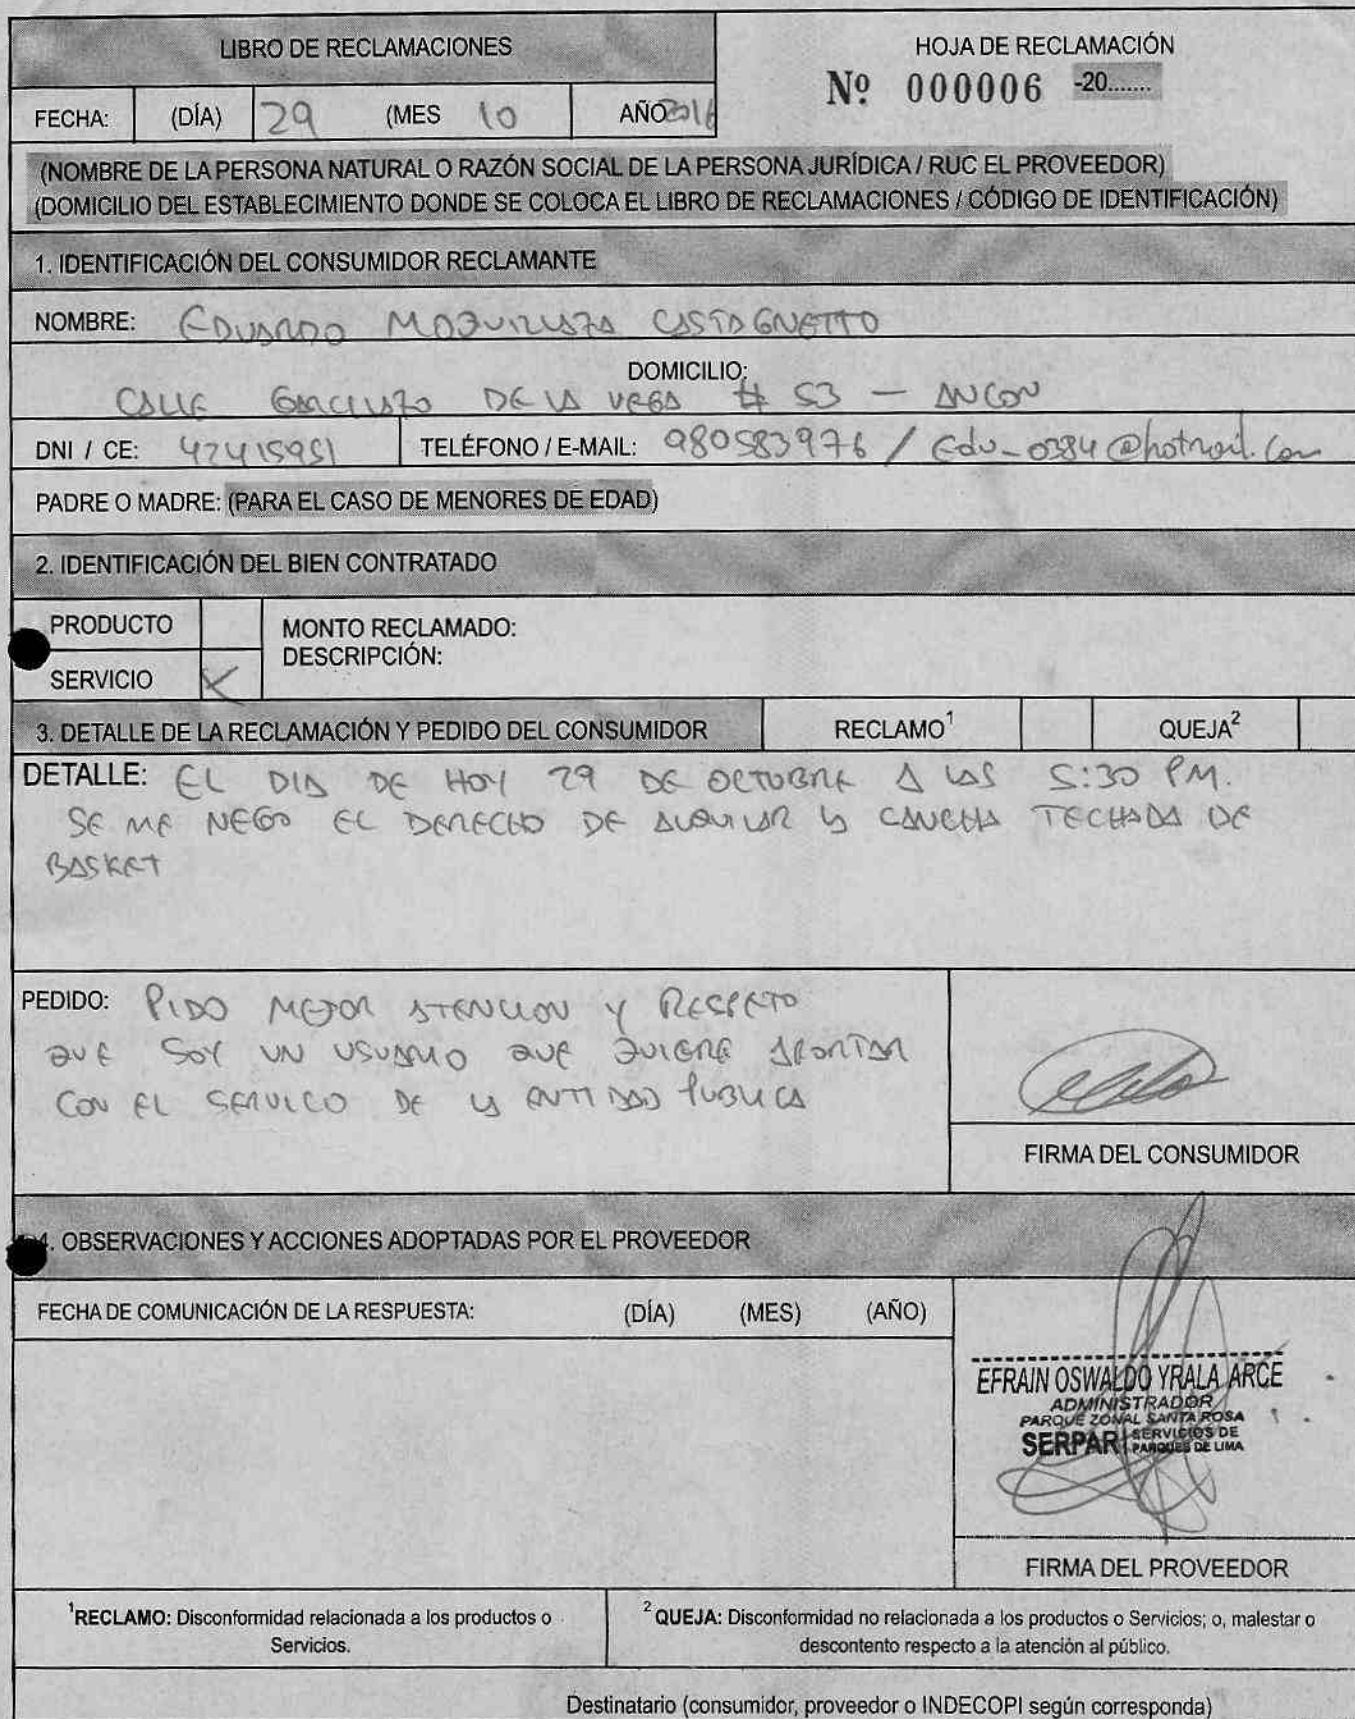 LIBRO DE RECLAMACIONES
HOJA DE RECLAMACIÓN
Nº 000006 -20.......
FECHA: (DÍA) 29 (MES 10 AÑO 2016
(NOMBRE DE LA PERSONA NATURAL O RAZÓN SOCIAL DE LA PERSONA JURÍDICA / RUC EL PROVEEDOR)
(DOMICILIO DEL ESTABLECIMIENTO DONDE SE COLOCA EL LIBRO DE RECLAMACIONES / CÓDIGO DE IDENTIFICACIÓN)
1. IDENTIFICACIÓN DEL CONSUMIDOR RECLAMANTE
NOMBRE: EDUARDO CASTAGNETTO
DOMICILIO:
CALLE GARCILAZO DE LA VEGA # 53 - ANCON
DNI / CE: 42415951 TELÉFONO / E-MAIL: 980583976 / Edu_0384@hotmail.com
PADRE O MADRE: (PARA EL CASO DE MENORES DE EDAD)
2. IDENTIFICACIÓN DEL BIEN CONTRATADO
PRODUCTO
SERVICIO X
MONTO RECLAMADO:
DESCRIPCIÓN:
3. DETALLE DE LA RECLAMACIÓN Y PEDIDO DEL CONSUMIDOR RECLAMO¹ QUEJA²
DETALLE: EL DIA DE HOY 29 DE OCTUBRE A LAS 5:30 PM.
SE ME NEGO EL DERECHO DE ALQUILAR LA CANCHA TECHADA DE
BASKET
PEDIDO: PIDO MEJOR ATENCION Y RESPETO
QUE SOY UN USUARIO QUE QUIERE APORTAR
CON EL SERVICIO DE LA ENTIDAD PUBLICA
FIRMA DEL CONSUMIDOR
4. OBSERVACIONES Y ACCIONES ADOPTADAS POR EL PROVEEDOR
FECHA DE COMUNICACIÓN DE LA RESPUESTA: (DÍA) (MES) (AÑO)
EFRAIN OSWALDO YRALA ARCE
ADMINISTRADOR
PARQUE ZONAL SANTA ROSA
SERPAR SERVICIOS DE
PARQUES DE LIMA
FIRMA DEL PROVEEDOR
¹RECLAMO: Disconformidad relacionada a los productos o
Servicios.
² QUEJA: Disconformidad no relacionada a los productos o Servicios; o, malestar o
descontento respecto a la atención al público.
Destinatario (consumidor, proveedor o INDECOPI según corresponda)